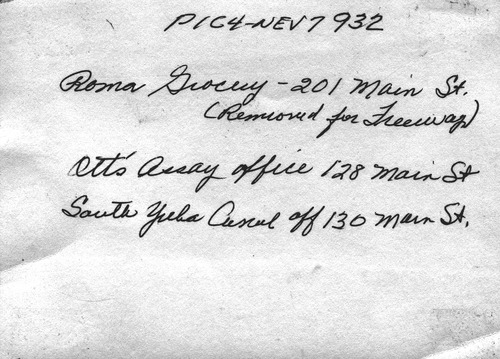 P164-NEV7932
Roma Grocery - 201 Main St.
(Removed for Freeway)
Ott's Assay office 128 Main St
South Yuba Canal off 130 Main St.